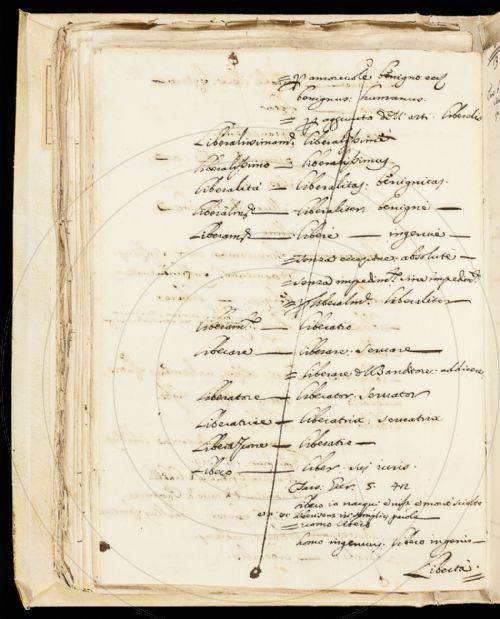 = p amorevole benigno ecc
benignus. humanus.
= p aggiunta dell'arti. liberalis
Liberalissimam.e liberalissimè
liberalissimo — liberalissimus
liberalità — liberalitas. benignitas.
liberalm.e — liberaliter. benignè —
Liberam.e — liberè — ingenuè —
= senza eccezione. absolutè —
= senza impedim.to sine impedim.to
= p liberalm.e liberaliter
liberam.to — liberatio
liberare — liberare. servare —
= liberare d. Banditore. addicere
liberatore — liberator. servator
Liberatrice — liberatrix. servatrix
Liberazione — liberatio —
Libero — liber. sui iuris.
Tass. Ger. 5. 42
libero io nacqui e vissi e morrò sciolto
= uomo libero
homo ingenuus. libero ingenio —
Libertà.